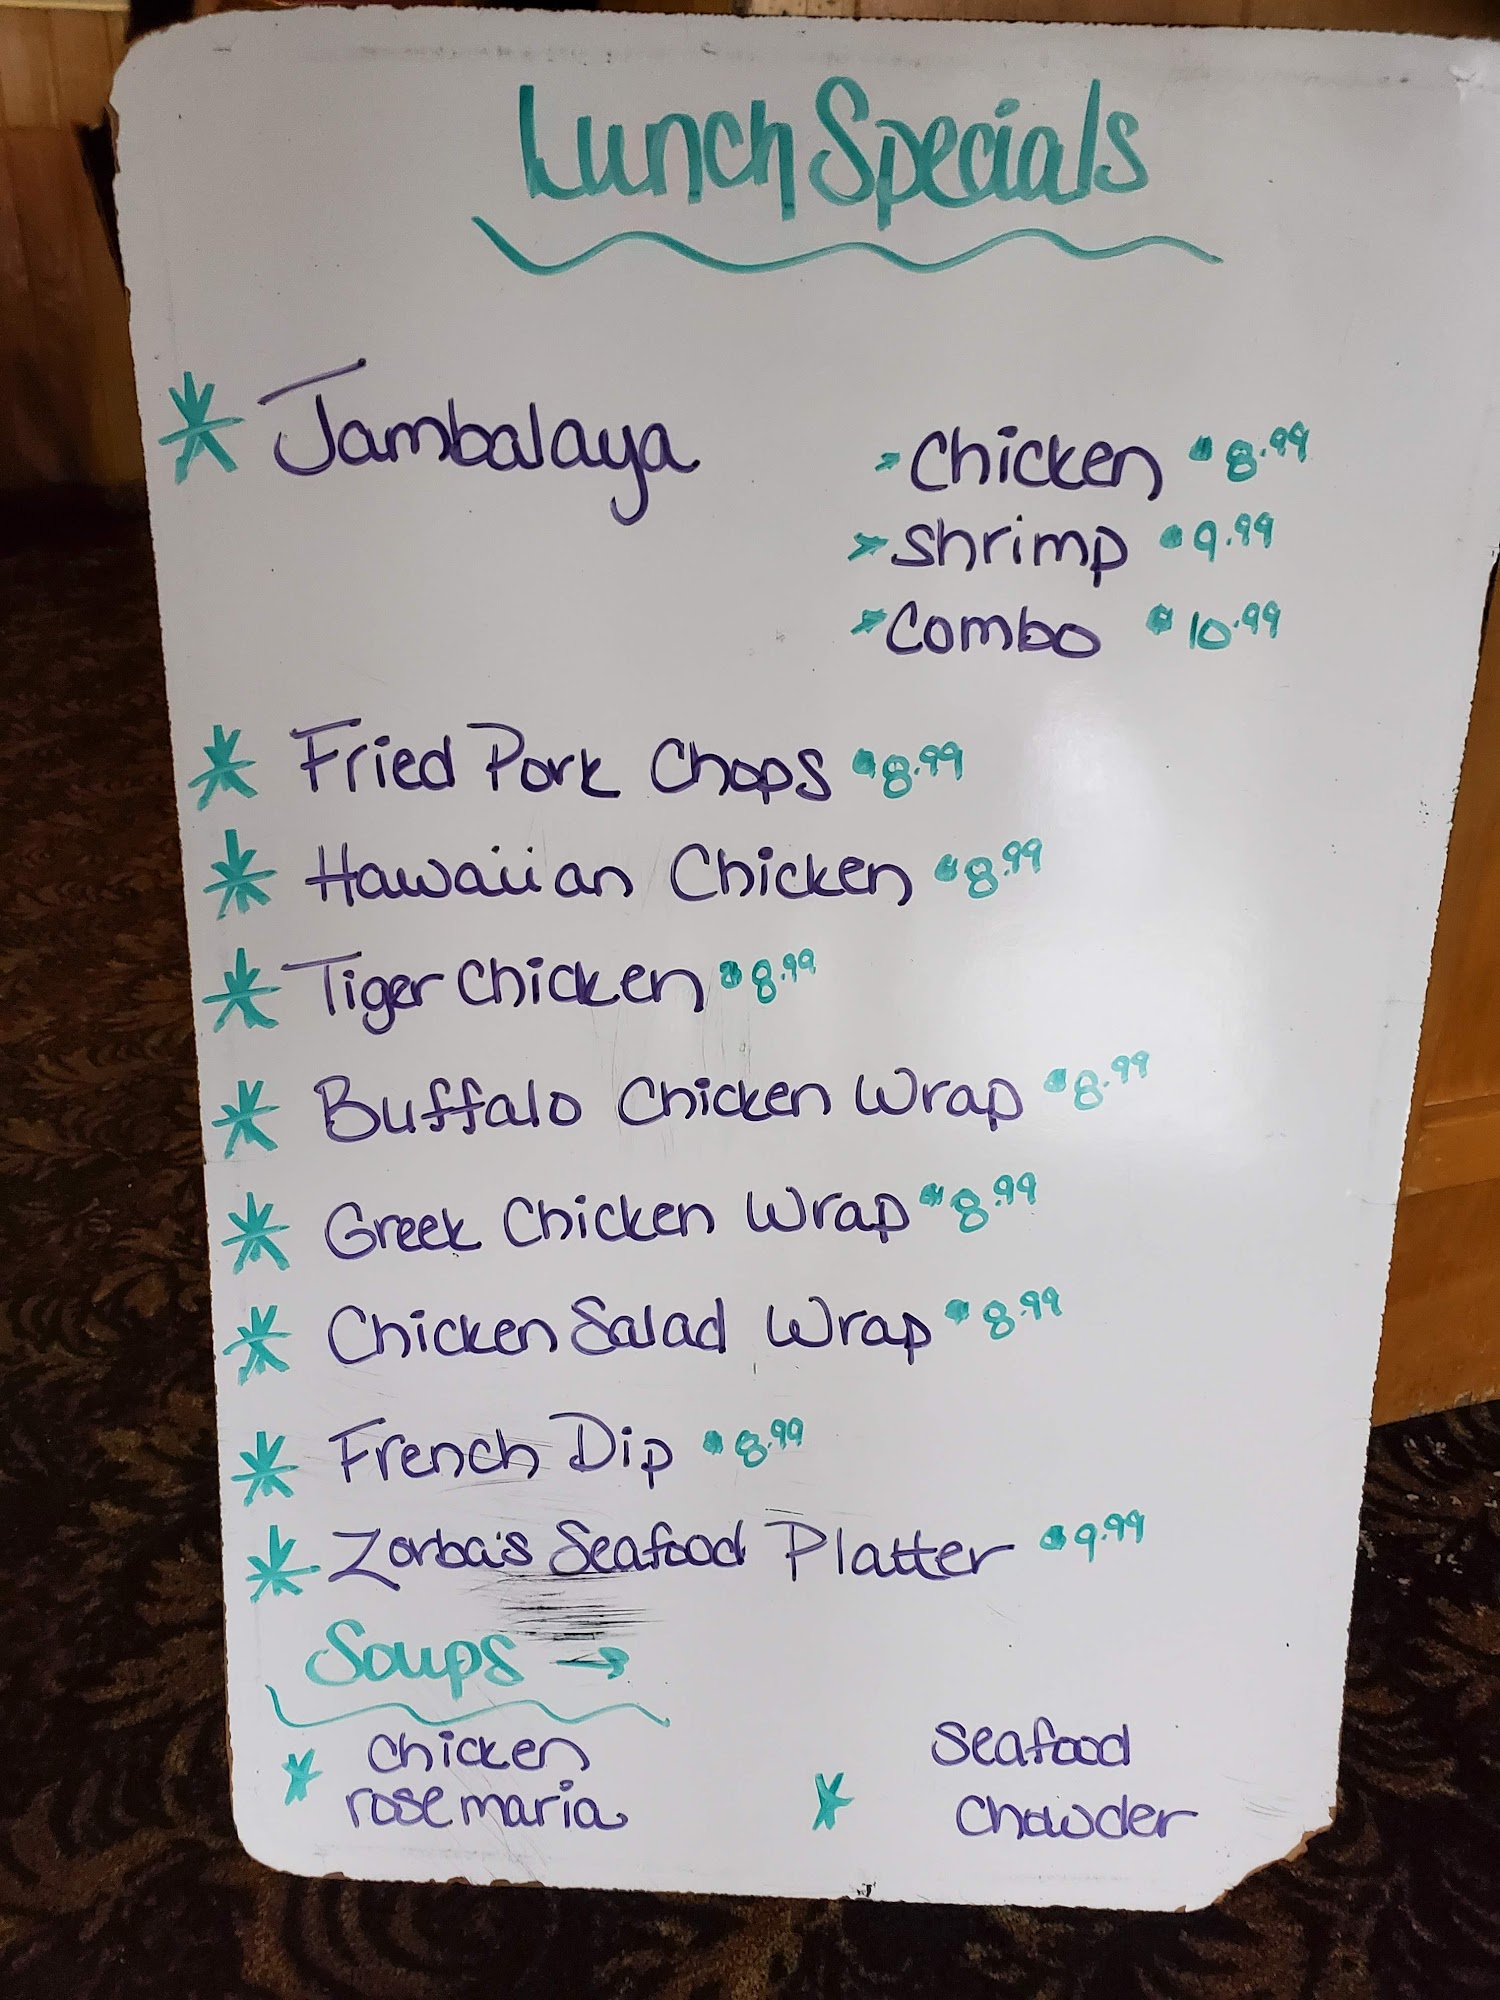 Lunch Specials
* Jambalaya > Chicken $8.99
> Shrimp $9.99
> Combo $10.99
* Fried Pork Chops $8.99
* Hawaiian Chicken $8.99
* Tiger Chicken $8.99
* Buffalo Chicken Wrap $8.99
* Greek Chicken Wrap $8.99
* Chicken Salad Wrap $8.99
* French Dip $8.99
* Zorba's Seafood Platter $9.99
Soups →
* Chicken rosemaria
* Seafood Chowder